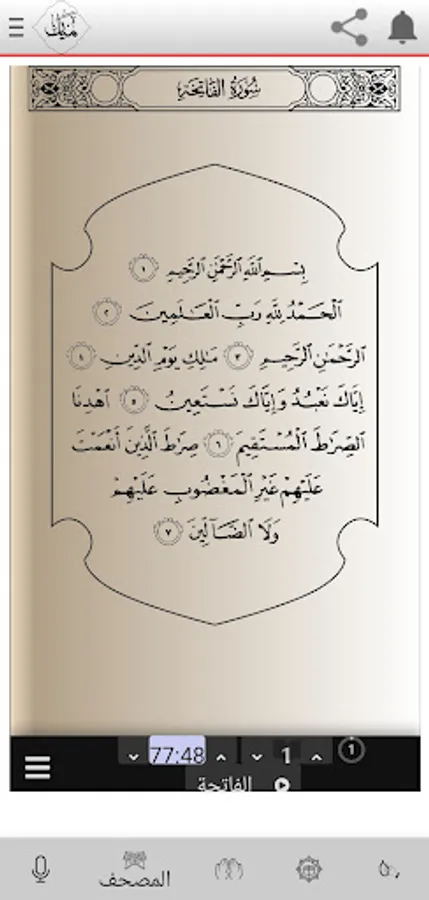 سُورَةُ الفَاتِحَةِ
بِسْمِ ٱللَّهِ ٱلرَّحْمَٰنِ ٱلرَّحِيمِ ١
ٱلْحَمْدُ لِلَّهِ رَبِّ ٱلْعَٰلَمِينَ ٢
ٱلرَّحْمَٰنِ ٱلرَّحِيمِ ٣ مَٰلِكِ يَوْمِ ٱلدِّينِ ٤
إِيَّاكَ نَعْبُدُ وَإِيَّاكَ نَسْتَعِينُ ٥ ٱهْدِنَا
ٱلصِّرَٰطَ ٱلْمُسْتَقِيمَ ٦ صِرَٰطَ ٱلَّذِينَ أَنْعَمْتَ
عَلَيْهِمْ غَيْرِ ٱلْمَغْضُوبِ عَلَيْهِمْ
وَلَا ٱلضَّآلِّينَ ٧
77:48 1 1
الفاتحة
المصحف